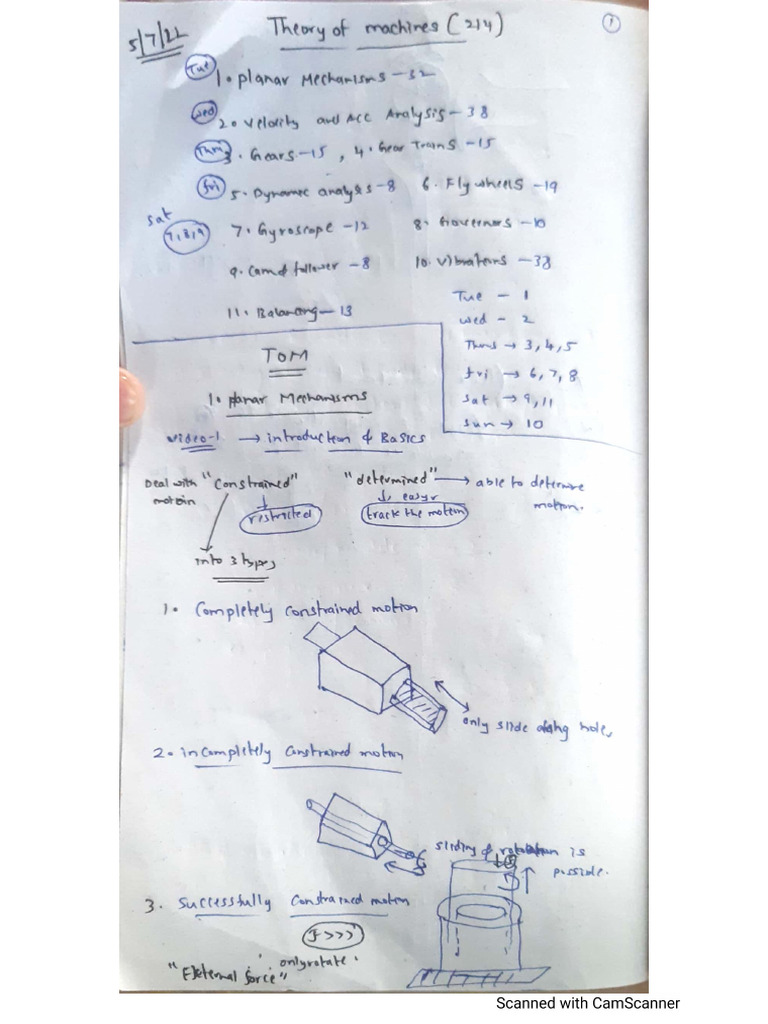 5/7/22
Theory of machines (214)
1
Tue
1. planar Mechanisms - 32
Wed
2. Velocity and Acc Analysis - 38
Thu
3. Gears - 15, 4. Gear Trains - 15
fri
5. Dynamic analysis - 8 6. Fly wheels - 19
sat
7,8,9
7. Gyroscope - 12 8. Governers - 10
9. Cam & follower - 8 10. vibrations - 38
11. Balancing - 13
Tue - 1
wed - 2
Thurs → 3, 4, 5
fri → 6, 7, 8
sat → 9, 11
sun → 10
TOM
1. planar Mechanisms
video-1 → introduction & Basics
Deal with "constrained" motion
↓
restricted
"determined" → able to determine motion.
↓ easy
track the motion
into 3 types
1. Completely constrained motion
only slide along hole
2. incompletely constrained motion
sliding & rotation is possible.
3. Successfully constrained motion
f >>>
only rotate.
"External force"
Scanned with CamScanner